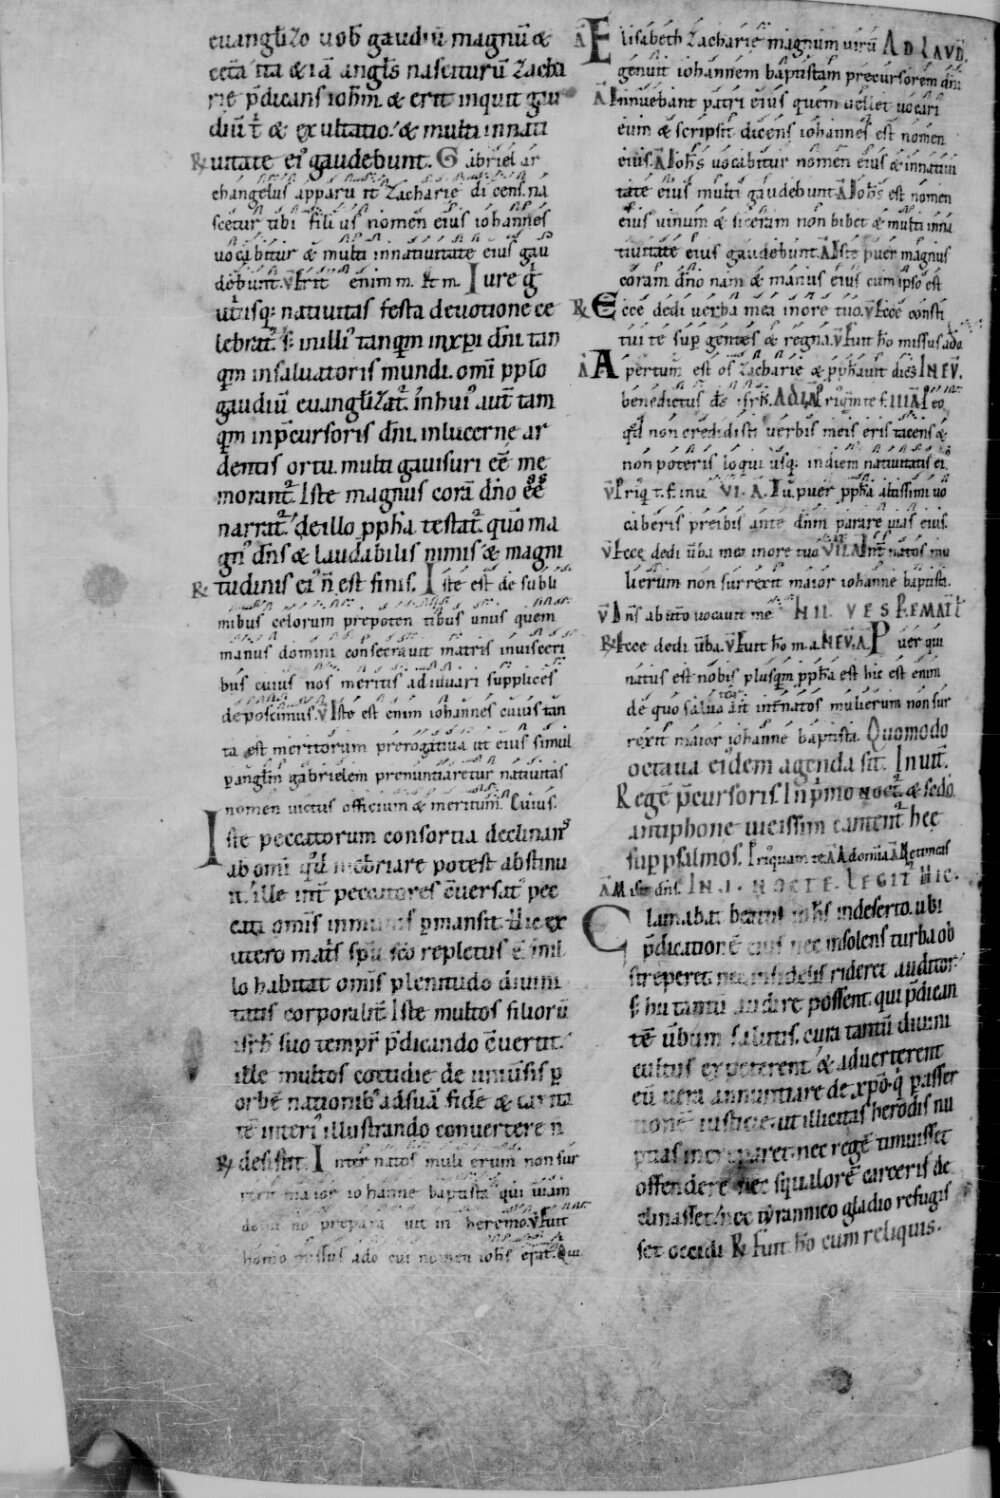 euangl̄izo uob̄ gaudiū magnū &
cetā ita & iā angl̄s nasciturū zacha
rie p̄dicans ioh̄m. & erit inquit gau
diū t̄ & exultatio. & multi innati
℟ uitate ei' gaudebunt. Gabriel ar
changelus apparuit zacharie dicens. na
scetur tibi filius nomen eius iohannes
uocabitur & multi innatiuitate eius gau
debunt. V̄ Erit enim m. & m. Iure g̊
ut̄isq; natiuitas festa deuotione ce
lebrat̄. S; inilli' tanquam inxp̄i dn̄i tan
quam insaluatoris mundi. omī pp̄lo
gaudiū euangl̄izat̄. inhui' aut̄ tam
quam inp̄cursoris dn̄i. inlucerne ar
dentis ortu. multi gauisuri eē me
morant̄. Iste magnus corā dn̄o eē
narrat̄. deillo pph̄a testat̄. quō ma
gn' dn̄s & laudabilis nimis & magni
℟ tudinis ei' n̄ est finis. Iste est de subli
mibus celorum prepotentibus unus quem
manus domini consecrauit matris inuisceri
bus cuius nos meritis adiuuari supplices
deposcimus. V̄ Iste est enim iohannes cuius tan
ta est meritorum prerogatiua ut eius simul
p angl̄m gabrielem prenuntiaretur natiuitas
nomen uictus officium & meritum. Cuius.
Iste peccatorum consortia declinans
ab omī qd̄ inebriare potest abstinu
it. ille int̄ peccatores cōuersat' pec
cati omīs inmunis pmansit. Hic ex
utero mat̄s spū scō repletus ē. in il
lo habitat omīs plenitudo diuini
tatis corporalit̄. Iste multos filiorū
isrl̄ suo tempr̄ p̄dicando cōuertit.
ille multos cottidie de uniūsis p
orbē nationib' adsuā fidē & carita
tē interi' illustrando conuertere n̄
℟ desistit. Inter natos mulierum non sur
rexit maior iohanne baptista qui uiam
domino preparauit in heremo. V̄ Fuit
homo missus a do cui nomen ioh̄s erat. Qui
Ā Elisabeth zacharie magnum uirū AD LAVD.
genuit iohannem baptistam precursorem dn̄i
Ā Innuebant patri eius quem uellet uocari
eum & scripsit dicens iohannes est nomen
eius. Ā Ioh̄s uocabitur nomen eius & innatiui
tate eius multi gaudebunt. Ā Ioh̄s est nomen
eius uinum & siceram non bibet & multi inna
tiuitate eius gaudebunt. Ā Iste puer magnus
coram dn̄o nam & manus eius cum ipso est
℟ Ecce dedi uerba mea inore tuo. V̄ Ecce consti
tui te sup gentes & regna. V̄ Fuit hō missus ado
Ā Apertum est os zacharie & pph̄auit dices IN EV.
benedictus ds̄ isrl̄. AD I. Ā Priusquam te f. III. Ā Pro eo
qd̄ non credidisti uerbis meis eris tacens &
non poteris loqui usq; indiem natiuitatis ei.
V̄ Priusq t. f. inu VI. A. Tu puer pph̄a altissimi uo
caberis preibis ante dn̄m parare uias eius.
V̄ Ecce dedi ūba mea inore tuo. VIII. Ā Int̄ natos mu
lierum non surrexit maior iohanne baptista.
V̄ Dn̄s ab utero uocauit me IN II. VESP. EMATT̄
℟ Ecce dedi ūba. V̄ Fuit hō m. a. IN EV. A. Puer qui
natus est nobis plusquam pph̄a est hic est enim
de quo saluator ait int̄ natos mulierum non sur
rexit maior iohanne baptista. Quomodo
octaua eidem agenda sit. Inuit̄.
Regē p̄cursoris. In p̄mo noct̄ & sēdo
antiphone uicissim canent̄ hec
sup psalmos. Priusquam te. Ā Ad omīa Ā Ne timeas
Ā Misit dn̄s. IN .I. NOCTE. LEGIT̄ HIC.
Clamabat beatus ioh̄s indeserto. ubi
p̄dicationē eius nec insolens turba ob
streperet. nec infidelis rideret auditor.
s; hi tantū audire possent. qui p̄dican
tē ūbum salutis. cura tantū diuini
cultus expeterent. & aduerterent
eū uera annuntiare de xp̄o. q p asser
tionē iusticie. ut illicitas herodis nu
ptias increparet. nec regē timuisset
offendere nec squalorē carceris de
clinasset. nec tyrannico gladio refugis
set occidi ℟ Fuit hō cum reliquis.